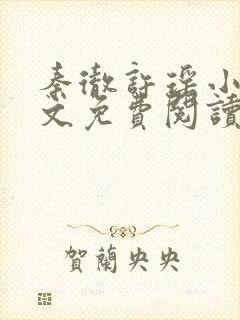 秦徹許瑶小
文免費閱讀
賀蘭央央